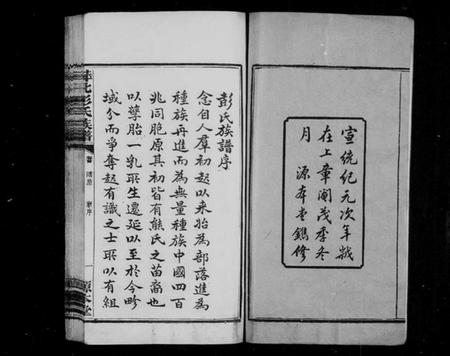 宣統紀元次年歲
在上章閹茂季冬
月 源本堂鐫修
彭氏族譜序
念自人羣初起以來始為部落進為
種族再進而為無量種族中國四百
兆同胞原其初皆有熊氏之苗裔也
以孽胎一乳駢生遷延以至於今畛
域分而爭奪起有識之士駢以有組
彭氏族譜
源本堂